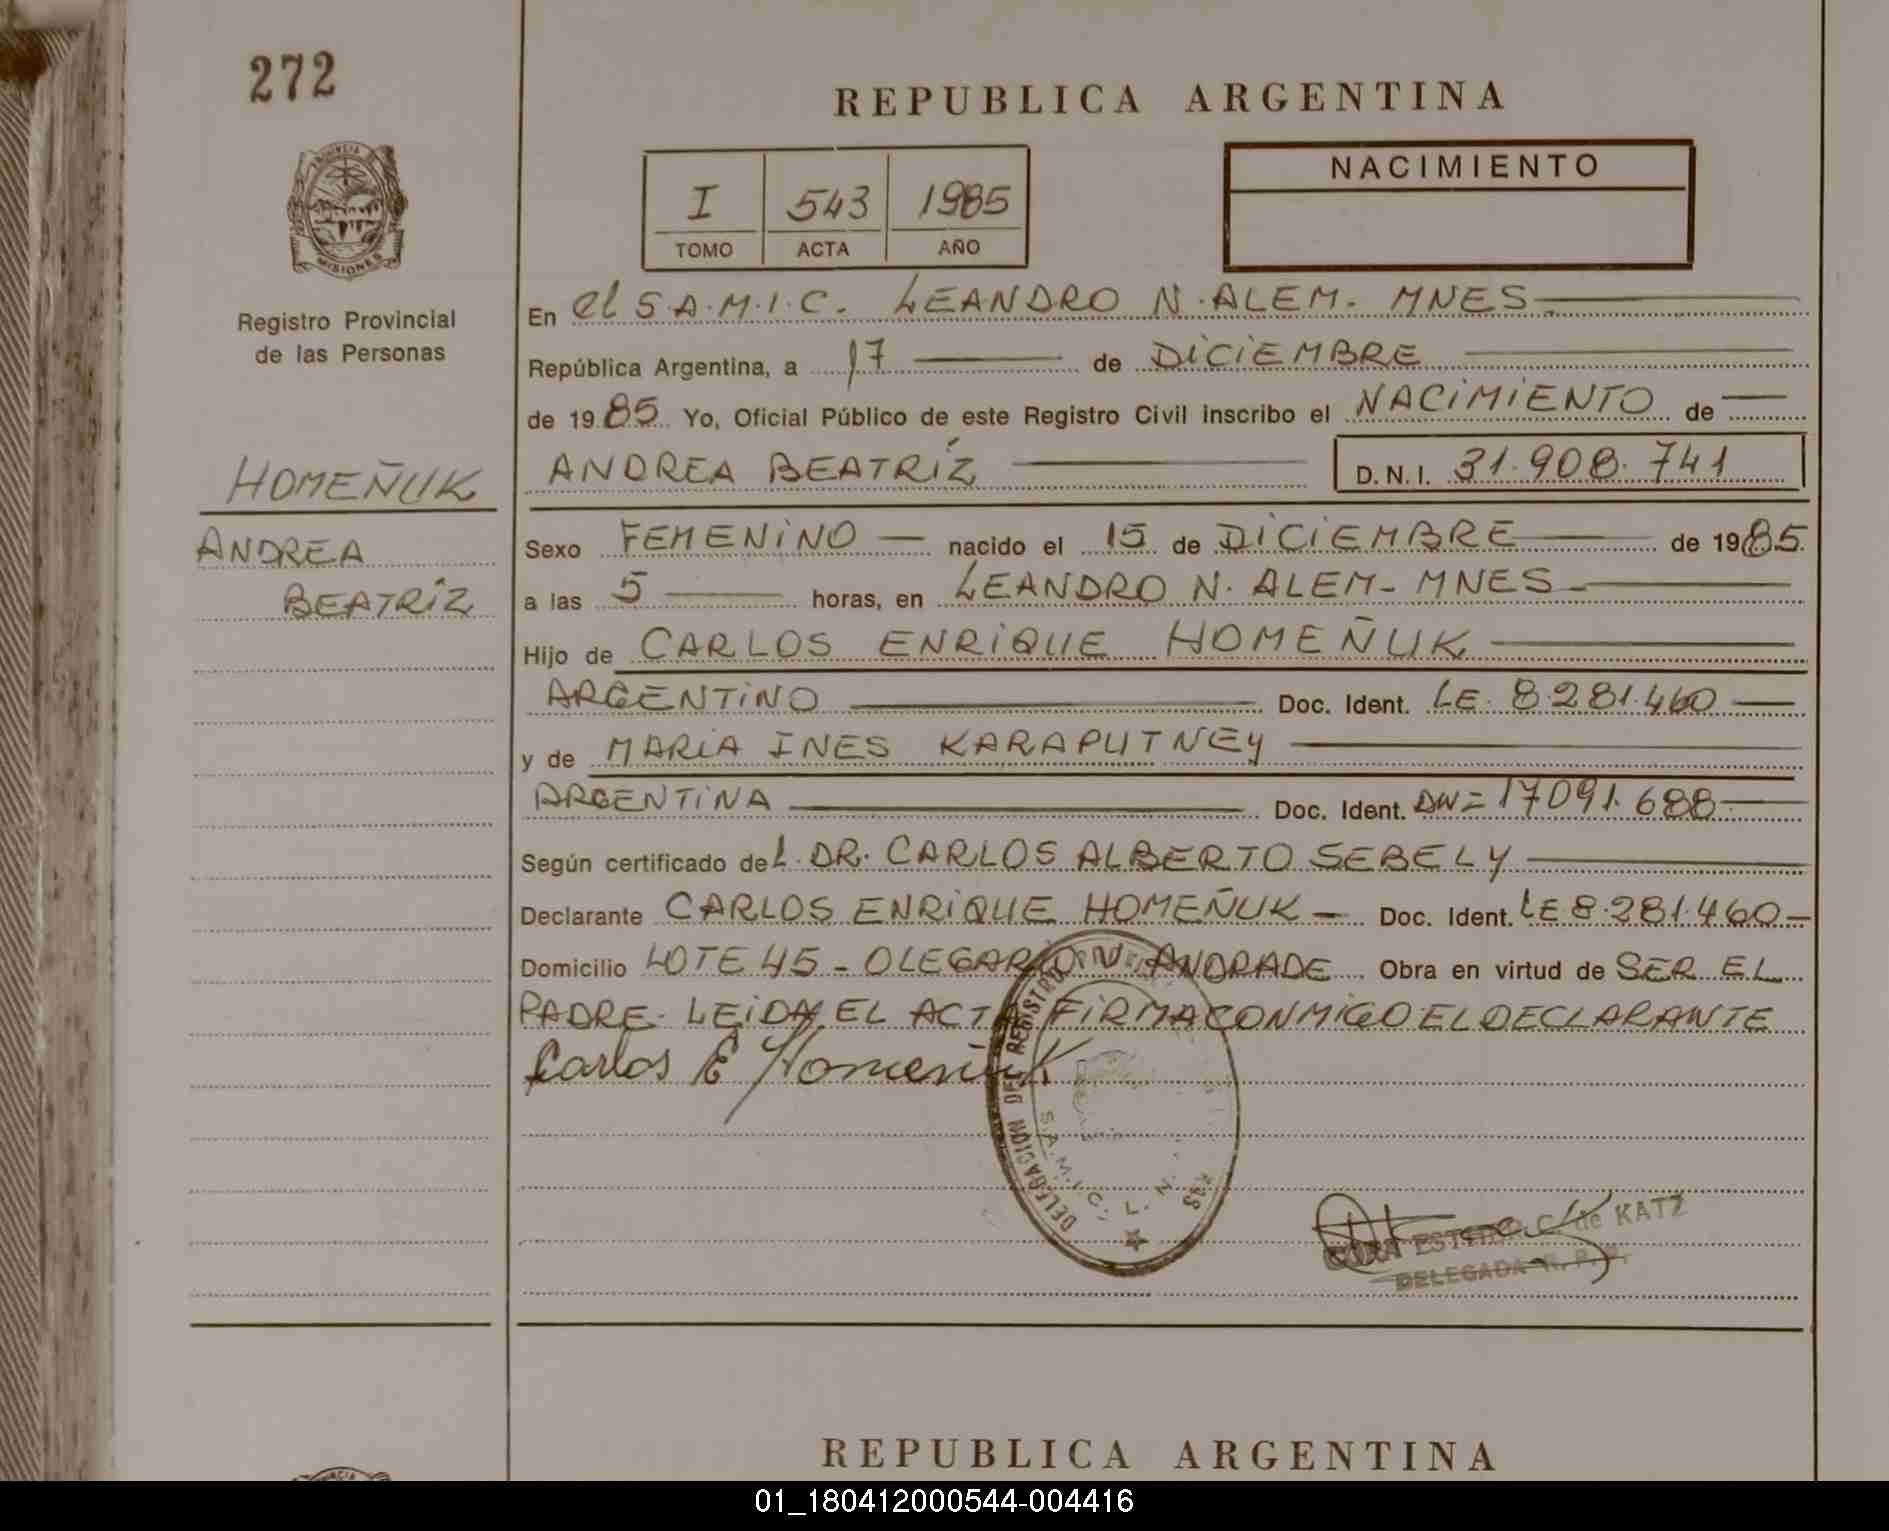 272
REPUBLICA ARGENTINA
PROVINCIA DE
MISIONES
Registro Provincial
de las Personas
I 543 1985
TOMO ACTA AÑO
NACIMIENTO
En el S.A.M.I.C. LEANDRO N. ALEM - MNES
República Argentina, a 17 de DICIEMBRE
de 1985 Yo, Oficial Público de este Registro Civil inscribo el NACIMIENTO de
ANDREA BEATRÍZ D.N.I. 31.908.741
HOMEÑUK
ANDREA
BEATRÍZ
Sexo FEMENINO nacido el 15 de DICIEMBRE de 1985.
a las 5 horas, en LEANDRO N. ALEM - MNES
Hijo de CARLOS ENRIQUE HOMEÑUK
ARGENTINO Doc. Ident. LE. 8.281.460
y de MARIA INES KARAPUTNEY
ARGENTINA Doc. Ident. 17091.688
Según certificado del. DR. CARLOS ALBERTO SEBELY
Declarante CARLOS ENRIQUE HOMEÑUK Doc. Ident. LE 8.281.460
Domicilio LOTE 45 - OLEGARIO V. ANDRADE Obra en virtud de SER EL
PADRE. LEIDA EL ACTA FIRMA CONMIGO EL DECLARANTE
Carlos E Homeñuk
DELEGACION DEL REGISTRO
S.A.M.I.C. L. N.
C. de KATZ
DELEGADA R. P. P.
REPUBLICA ARGENTINA
01_180412000544-004416